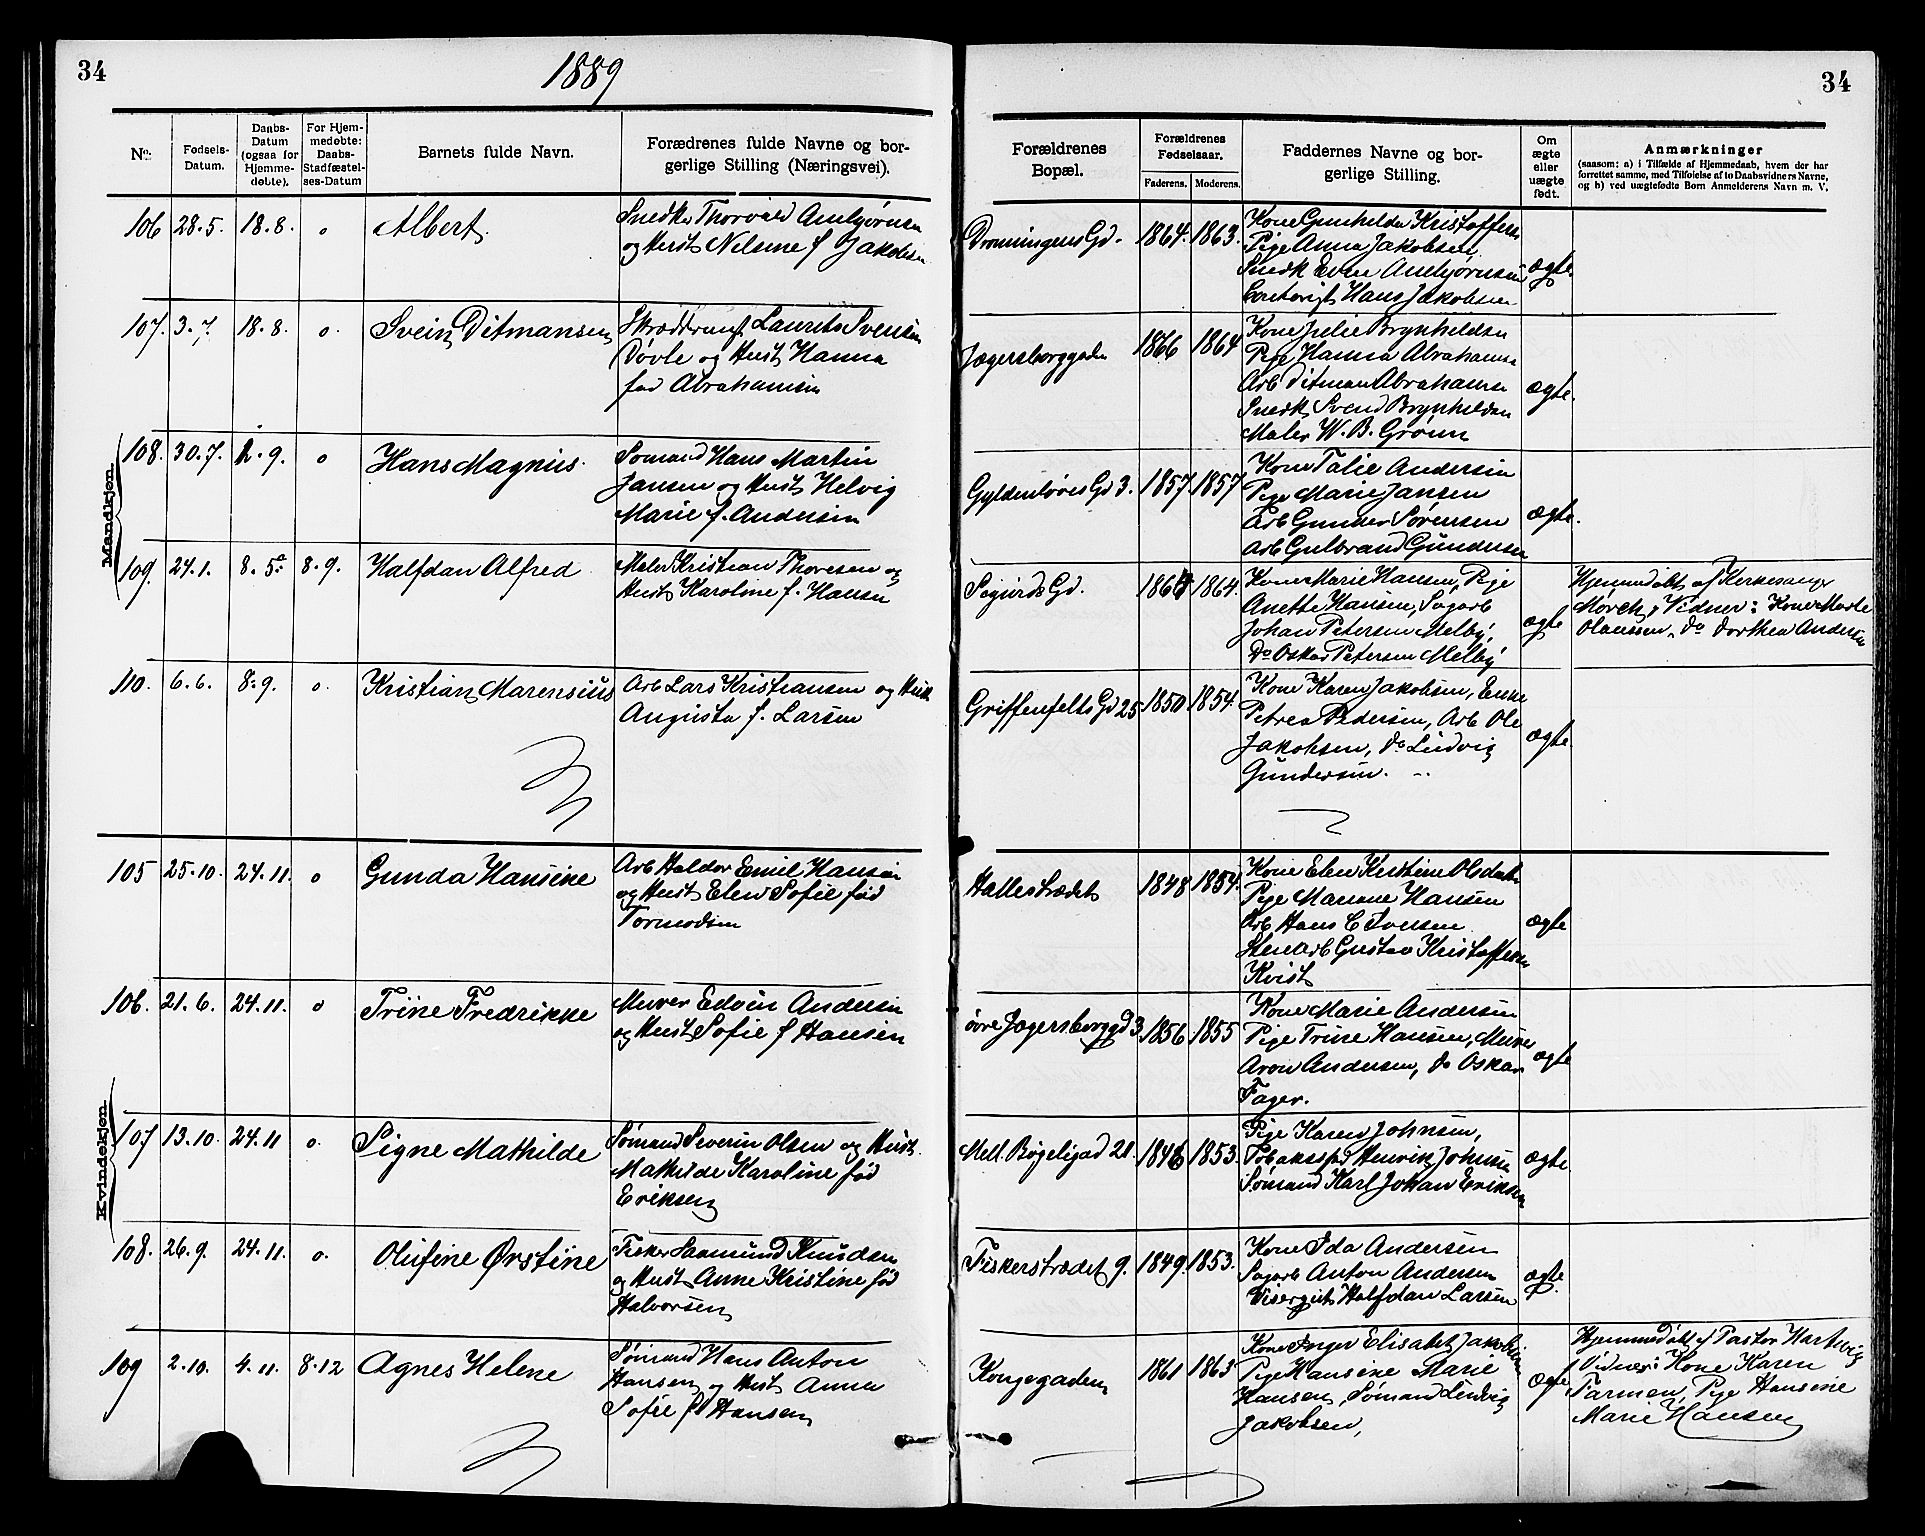 34
1889
34
No.
Fødsels-
Datum.
Daabs-
Datum
(ogsaa for
Hjemme-
døbte).
For Hjem-
medøbte:
Daabs-
Stadfæstel-
ses-Datum
Barnets fulde Navn.
Forædrenes fulde Navne og bor-
gerlige Stilling (Næringsvei).
Forældrenes
Bopæl.
Forældrenes
Fødselsaar.
Faderens.
Moderens.
Faddernes Navne og bor-
gerlige Stilling.
Om
ægte
eller
uægte
født.
Anmærkninger
(saasom: a) i Tilfælde af Hjemmedaab, hvem der har
forrettet samme, med Tilføielse af to Daabsvidners Navne,
og b) ved uægtefødte Børn Anmelderens Navn m. V.
Mandkjøn.
106 28.5. 18.8. o Albert.
Snedk. Thorvald Ambjørnsen
og Hust Nilsine f Jakobsen
Dronningens Gd. 1864. 1863.
Kone Gunhilda Kristoffersen
Pige Anna Jakobsen
Snedk Even Ambjørnsen
Hans Jakobsen
ægte
107. 3.7. 18.8. o. Svein Ditmansen
Laurits Svensen
Døvle og Hust Hanna
fød Abrahamsen
Jægersborggaden 1866 1864
Kone Julie Brynhildsen
Pige Hanna Abrahamsen
Arb Ditman Abrahamsen
Snedk Svend Brynhildsen
Maler W. B. Grönn
ægte.
108. 30.7. 1.9. o Hans Magnus.
Sømand Hans Martin
Jansen og Hust Helvig
Marie f. Andersen
Gyldenløves Gd 3. 1857. 1857
Kone Talie Andersen
Pige Marie Jansen
Arb Gunder Sørensen
Arb Gulbrand Gundersen
ægte.
109. 24.1. 8.5. 8.9. Halfdan Alfred
Maler Kristian Thoresen og
Hust Karoline f. Hansen
Sigurds Gd. 1864 1864.
Kone Marie Hansen, Pige
Anette Hansen, Sagarb
Johan Petersen Melby,
Do Oskar Petersen Melby
ægte
Hjemmedøbt af Kirkesanger
Mörch, Vidner: Kone Marte
Olaussen, Do Dorthea Andersen
110. 6.6. 8.9. o. Kristian Marensius
Arb Lars Kristiansen og Hust
Augusta f. Larsen
Griffenfelts Gd 25 1850 1854.
Kone Karen Jakobsen, Enke
Petrea Pedersen, Arb Ole
Jakobsen, Do Ludvig
Gundersen.
ægte
Kvindekjøn.
105 25.10. 24.11. o Gunda Hansine
Arb Haldor Emil Hansen
og Hust Elen Sofie fød
Tormodsen
Hallestrædet 1848 1854.
Kone Elen Kirstine Olsdatter
Pige Hansen
Arb Hans C Ionsen
Stenarb Gustav Kristoffersen
Kvist
ægte
106. 21.6. 24.11. o Trine Fredrikke
Murer Edvin Andersen
og Hust Sofie f Hansen
övre Jægersborggd 3 1856 1855
Kone Marie Andersen
Pige Trine Hansen, Murer
Aron Andersen, do Oskar
Fager.
ægte
107 13.10. 24.11 o. Signe Mathilde
Sømand Severin Olsen og Hust.
Mathilde Karoline fød
Eriksen
Mell. Bøgeligad 21. 1846 1853.
Pige Karen Johnsen,
Henrik Johnsen
Sømand Karl Johan Eriksen
ægte
108. 26.9. 24.11. o. Olufine Ørstine
Fisker Saamund Knudsen
og Hust Anne Kristine fød
Halvorsen
Fiskerstrædet 9. 1849. 1853.
Kone Ida Andersen
Sagarb Anton Andersen
Visergut Halfdan Larsen
ægte.
109 2.10. 4.11. 8.12 Agnes Helene
Sømand Hans Anton
Hansen og Hust Anna
Sofie f Hansen
Kongegaden 1861 1863
Kone Inger Elisabet Jakobsen
Pige Hansine Marie
Hansen, Sømand Ludvig
Jakobsen,
ægte
Hjemmedøbt af Pastor Hartvig
Vidner: Kone Karen
Tarmen, Pige Hansine
Marie Hansen